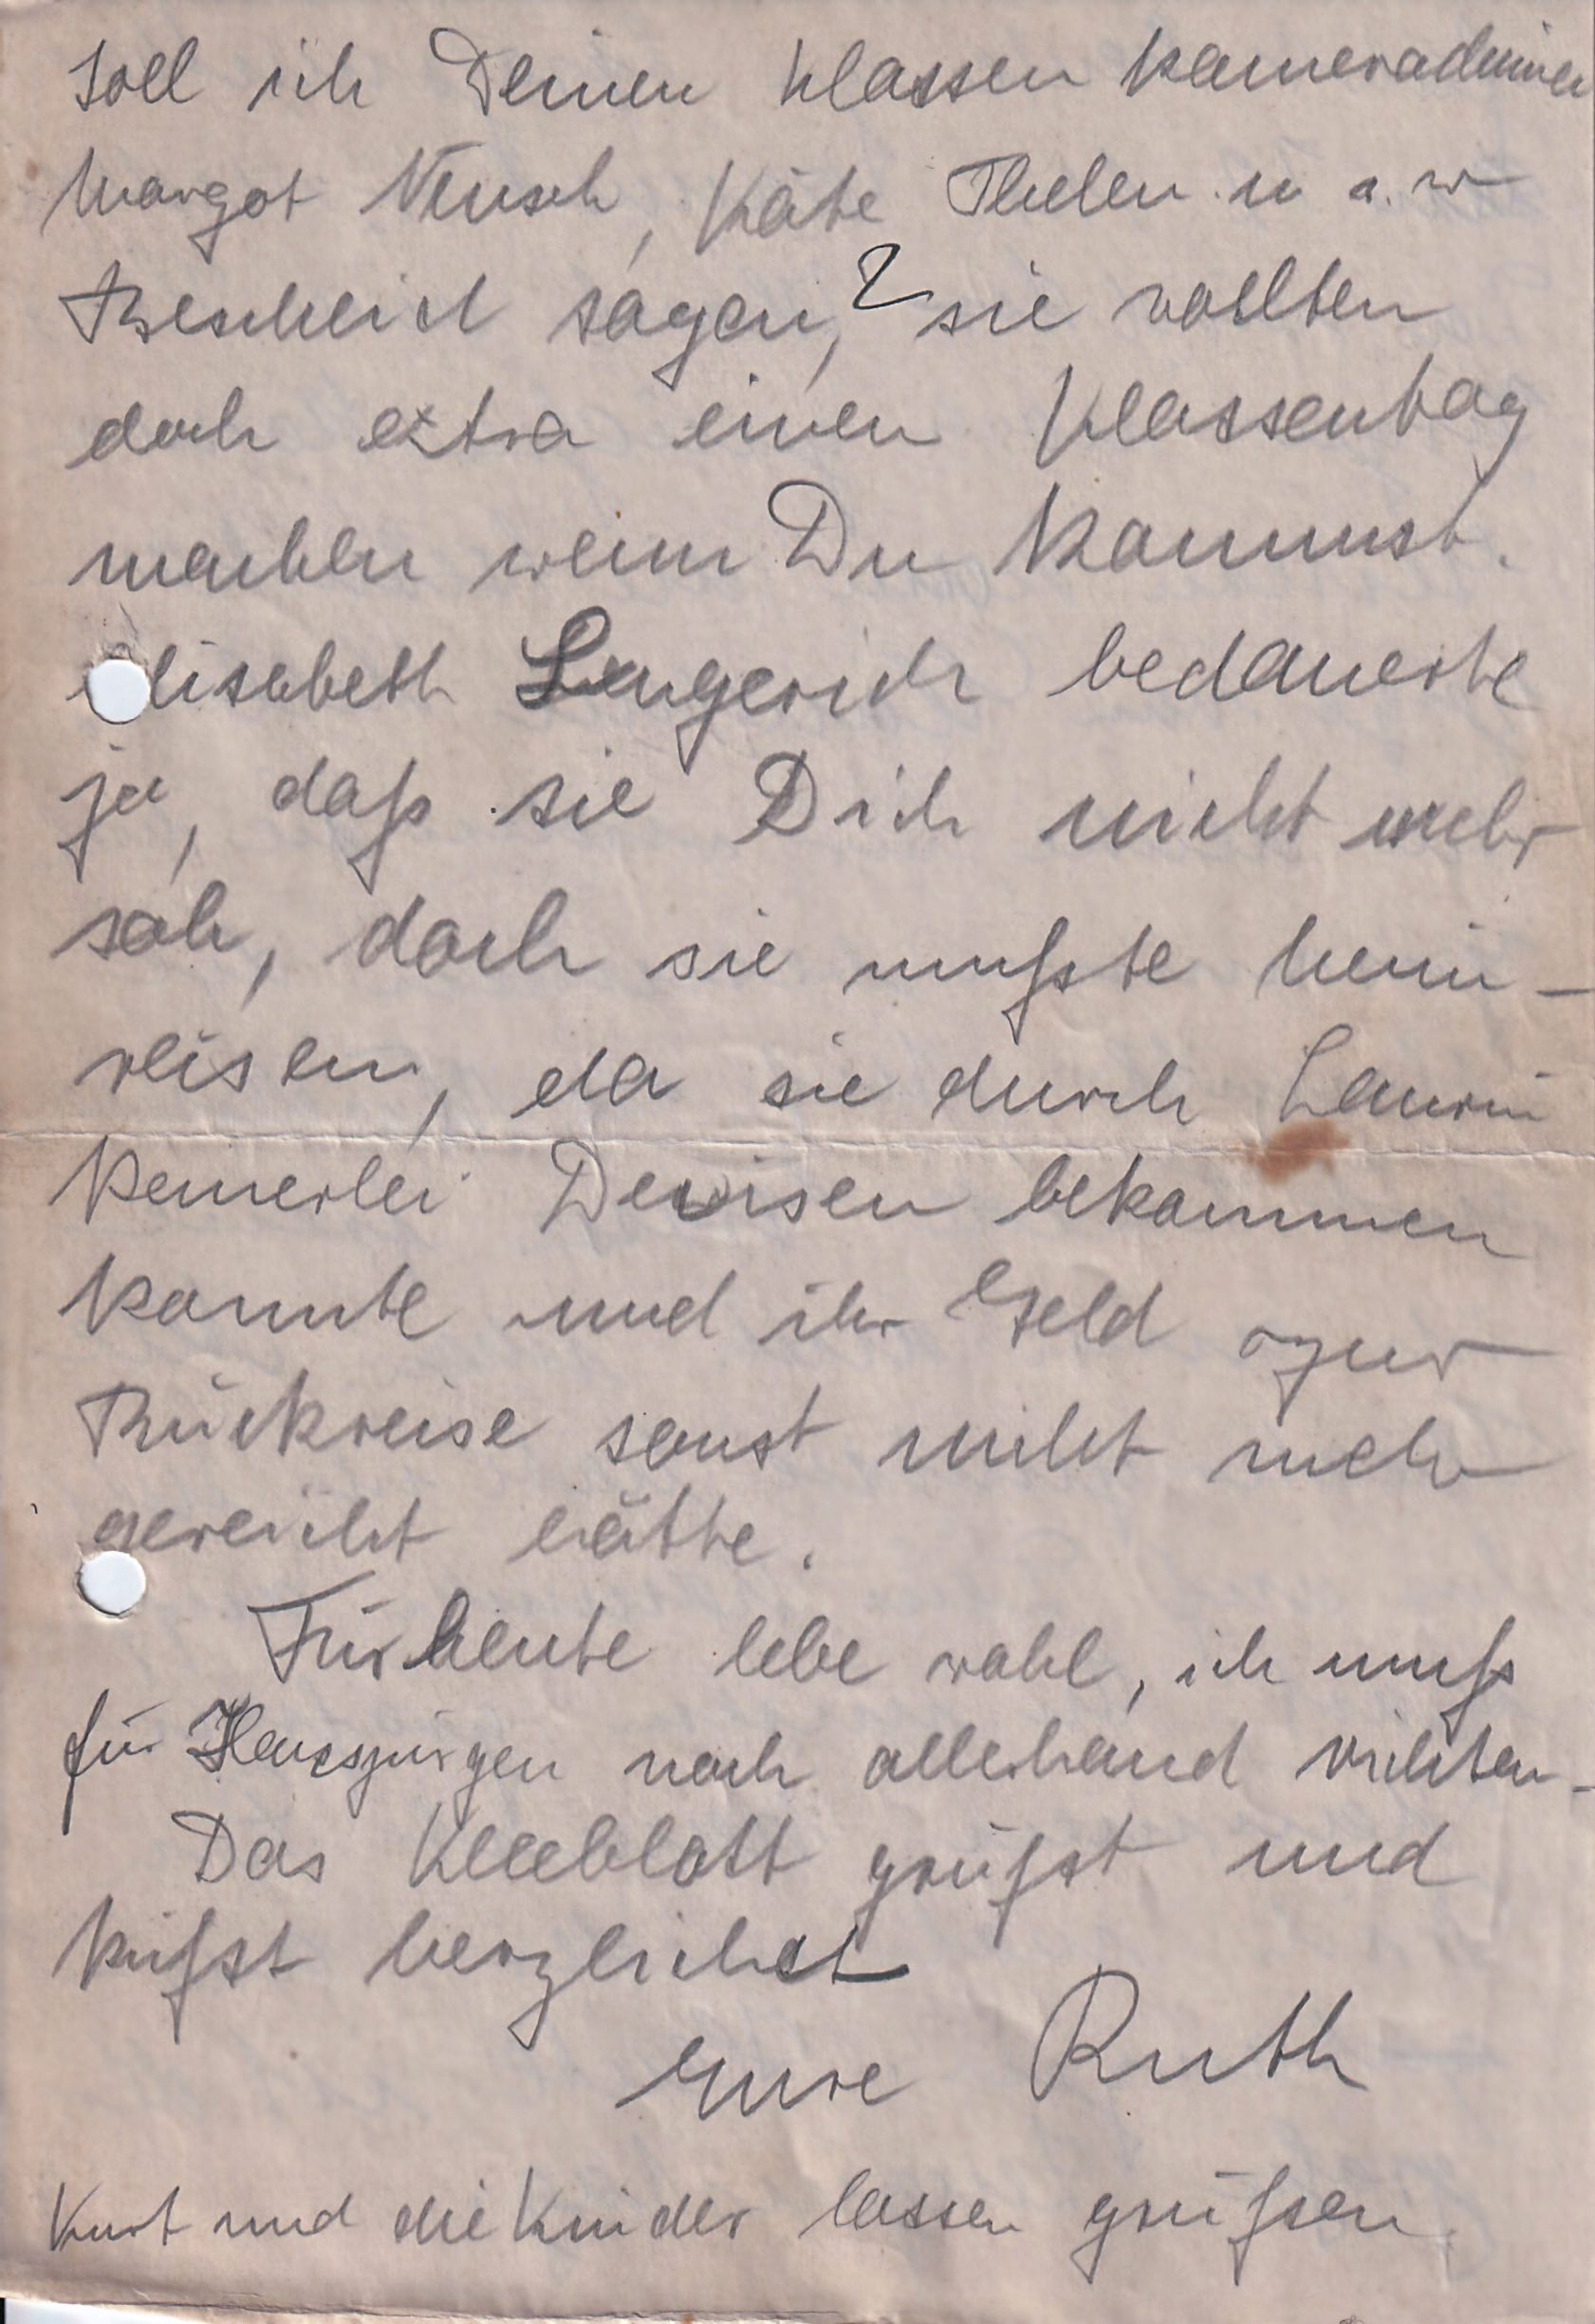 Soll ich Deinen Klassen kameradinnen
Margot Neusch, Käte Thelen u s. w
Bescheid sagen,? sie wollten
doch extra einen Klassentag
machen wenn Du kommst.
Elisabeth Lengerich bedauerte
ja, daß sie Dich nicht mehr
sah, doch sie mußte heim-
reisen, da sie durch
keinerlei Devisen bekommen
konnte und ihr Geld zur
Rückreise sonst nicht mehr
gereicht hätte.
Für heute lebe wohl, ich muß
für Hansjürgen noch allerhand richten.
Das Kleeblatt grüßst und
küßst herzlichst
Eure Ruth
Kurt und die Kinder lassen grüßen.